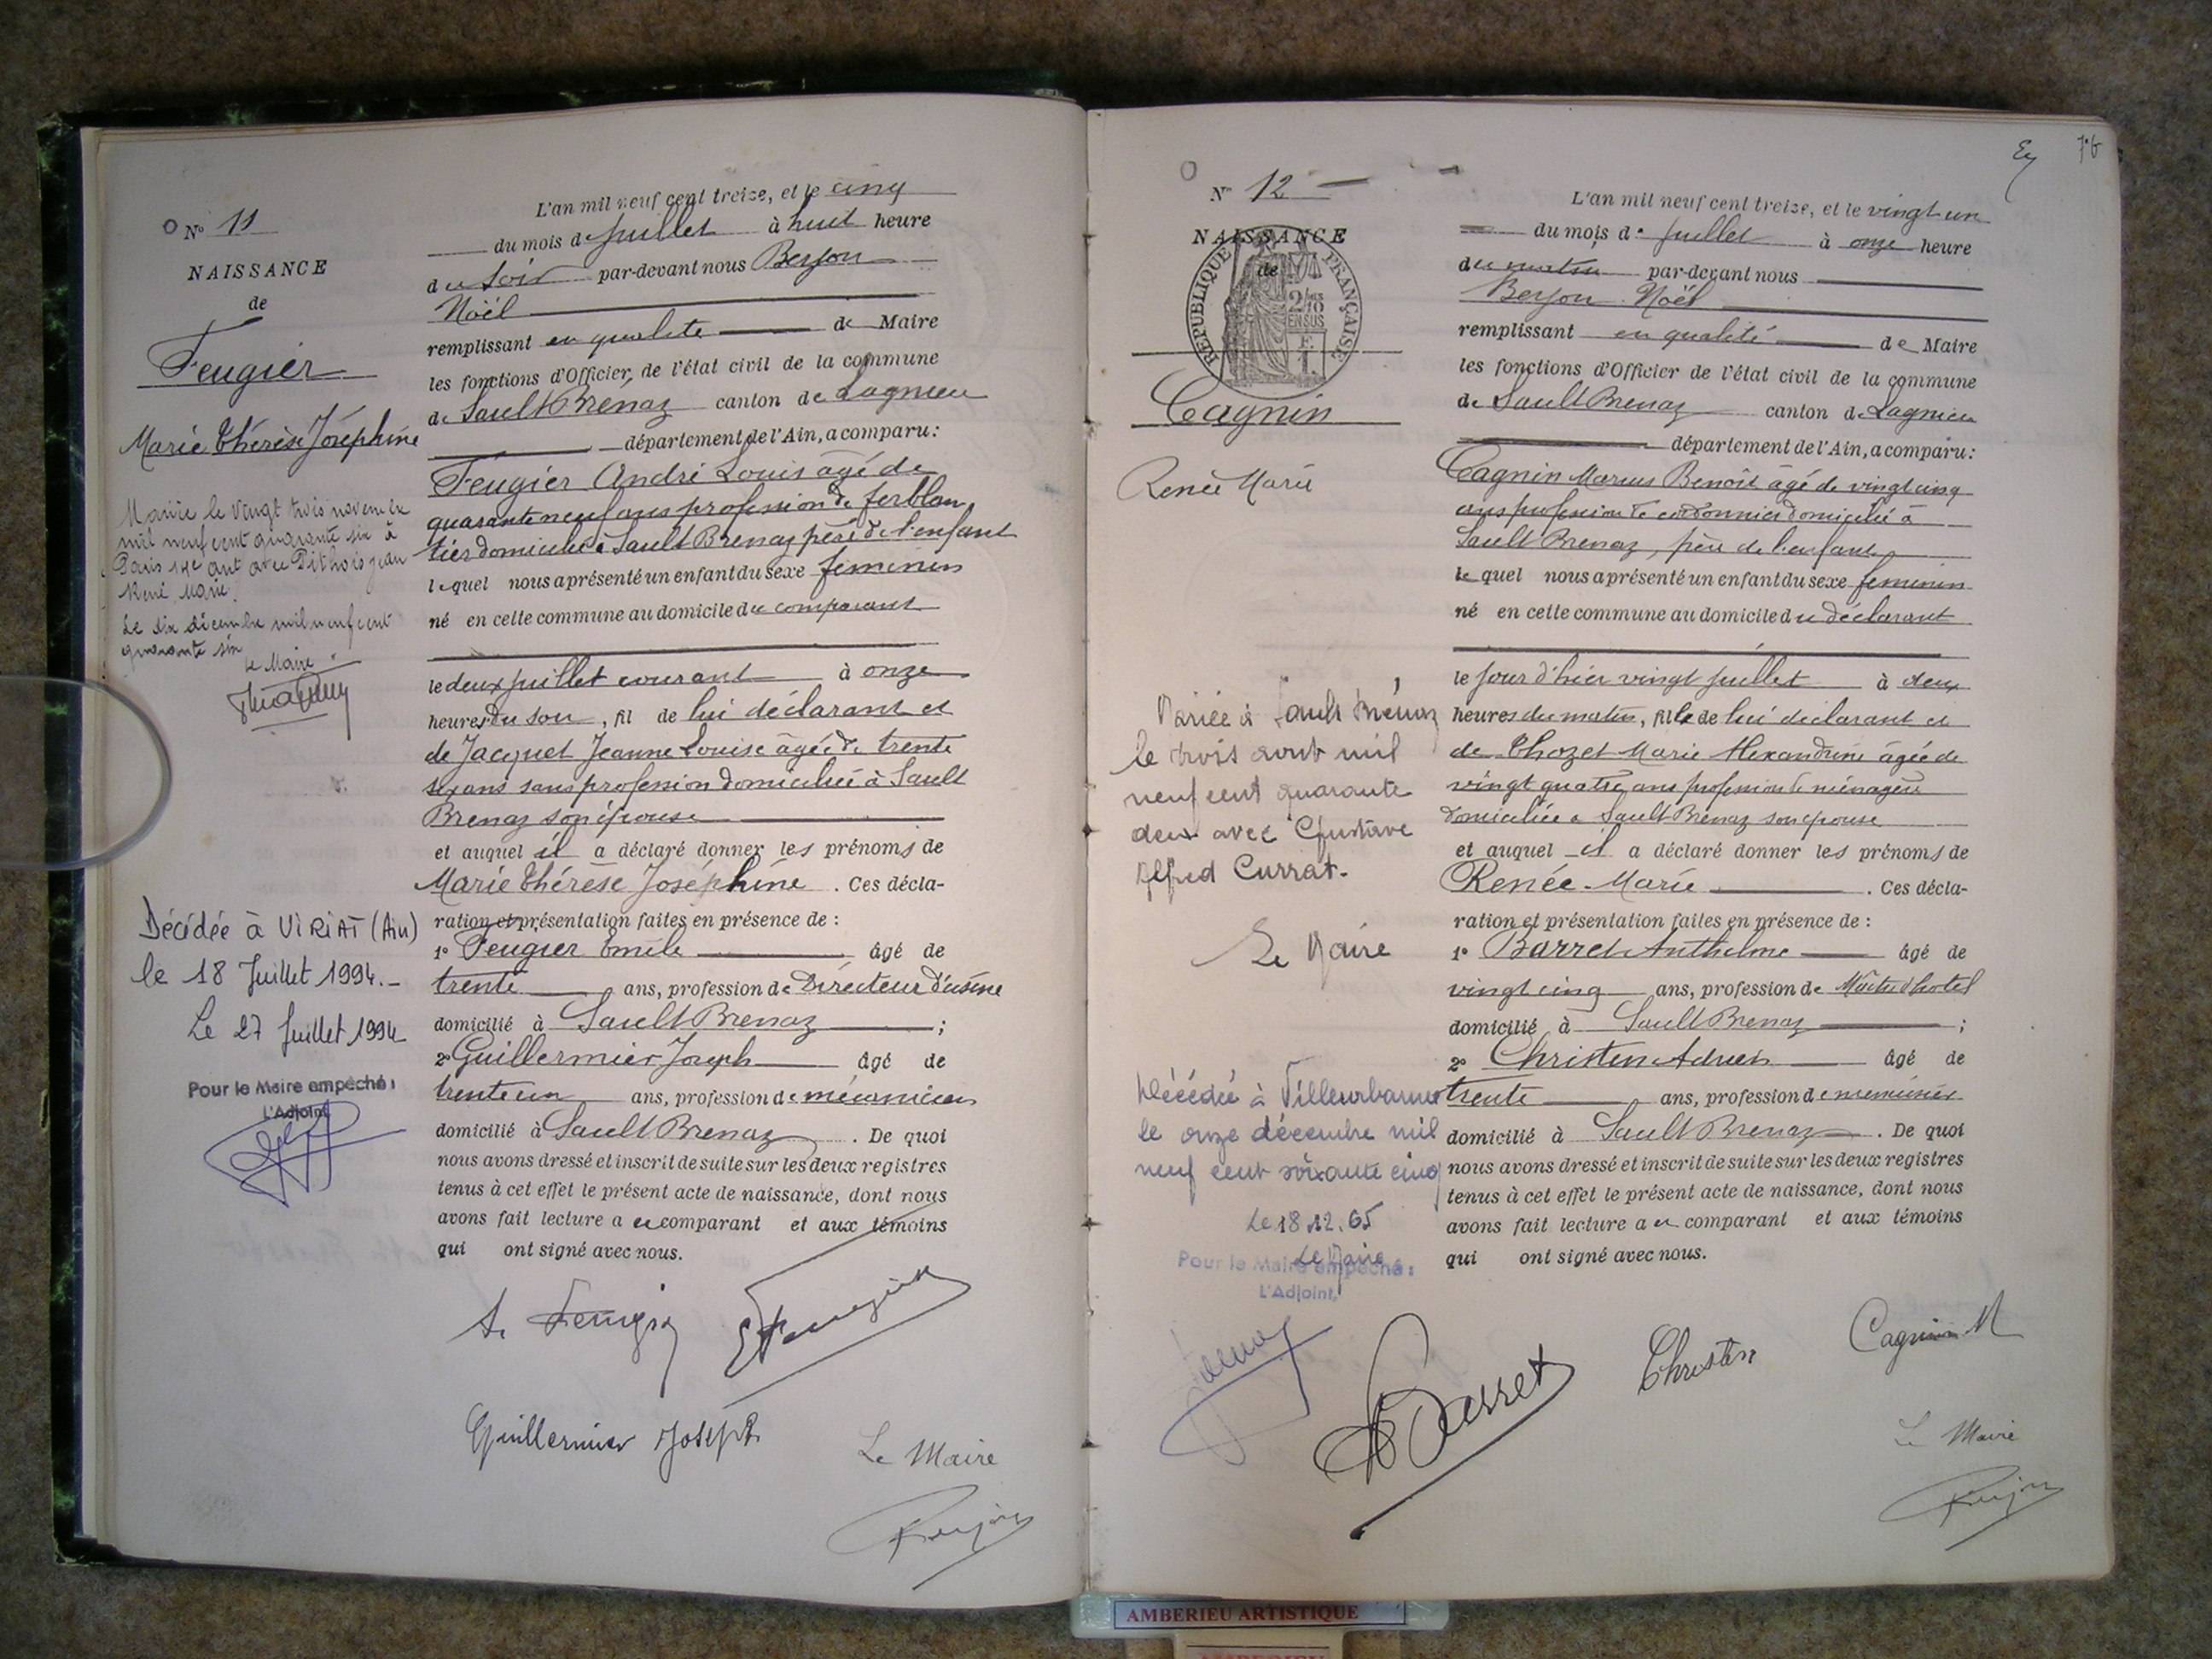 N° 11
NAISSANCE
de
Feugier
Marie Thérèse Joséphine
Mariée le vingt trois novembre
mil neuf cent quarante six à
Paris 14e arrt avec Dithois Jean
René Marie.
Le dix décembre mil neuf cent
quarante six
Le Maire
Décédée à VIRIAT (Ain)
le 18 Juillet 1994.-
Le 27 Juillet 1994
Pour le Maire empêché :
L'Adjoint
L'an mil neuf cent treize, et le cinq
du mois de juillet à huit heure
du soir par-devant nous Berjon
Noël
remplissant en qualité de Maire
les fonctions d'Officier de l'état civil de la commune
de Sault Brénaz canton de Lagnieu
département de l'Ain, a comparu :
Feugier André Louis âgé de
quarante neuf ans profession de ferblan
tier domicilié à Sault Brenaz père de l'enfant
lequel nous a présenté un enfant du sexe féminin
né en cette commune au domicile du comparant
le deux juillet courant à onze
heures du soir, fil de lui déclarant et
de Jacquet Jeanne Louise âgée de trente
six ans sans profession domiciliée à Sault
Brenaz son épouse
et auquel il a déclaré donner les prénoms de
Marie Thérèse Joséphine . Ces décla-
ration et présentation faites en présence de :
1° Feugier Emile âgé de
trente ans, profession de Directeur d'usine
domicilié à Sault Brenaz ;
2° Guillermier Joseph âgé de
trente un ans, profession de mécanicien
domicilié à Sault Brenaz . De quoi
nous avons dressé et inscrit de suite sur les deux registres
tenus à cet effet le présent acte de naissance, dont nous
avons fait lecture au comparant et aux témoins
qui ont signé avec nous.
A. Feugier E Feugier
Guillermier Joseph
Le Maire
Berjon
76
N° 12
NAISSANCE
de
RÉPUBLIQUE FRANÇAISE
2/10
EN SUS
Cagnin
Renée Marie
Mariée à Sault Brénaz
le trois août mil
neuf cent quarante
deux avec Gustave
Alfred Currat.
Le Maire
Décédée à Villeurbanne
le onze décembre mil
neuf cent soixante cinq
Le 18.12.65
Le Maire
Pour le Maire empêché :
L'Adjoint,
L'an mil neuf cent treize, et le vingt un
du mois de juillet à onze heure
du matin par-devant nous
Berjon Noël
remplissant en qualité de Maire
les fonctions d'Officier de l'état civil de la commune
de Sault Brenaz canton de Lagnieu
département de l'Ain, a comparu :
Cagnin Marius Benoît âgé de vingt cinq
ans profession de cordonnier domicilié à
Sault Brenaz, père de l'enfant
lequel nous a présenté un enfant du sexe féminin
né en cette commune au domicile du déclarant
le jour d'hier vingt juillet à deux
heures du matin, fille de lui déclarant et
de Chozet Marie Alexandrine âgée de
vingt quatre ans profession de ménagère
domiciliée à Sault Brénaz son épouse
et auquel il a déclaré donner les prénoms de
Renée Marie . Ces décla-
ration et présentation faites en présence de :
1° Barret Anthelme âgé de
vingt cinq ans, profession de Maître d'hôtel
domicilié à Sault Brenaz ;
2° Christin Adrien âgé de
trente ans, profession de menuisier
domicilié à Sault Brenaz . De quoi
nous avons dressé et inscrit de suite sur les deux registres
tenus à cet effet le présent acte de naissance, dont nous
avons fait lecture au comparant et aux témoins
qui ont signé avec nous.
A Barret Christin Cagnin M
Le Maire
Berjon
AMBERIEU ARTISTIQUE
AMBERIEU